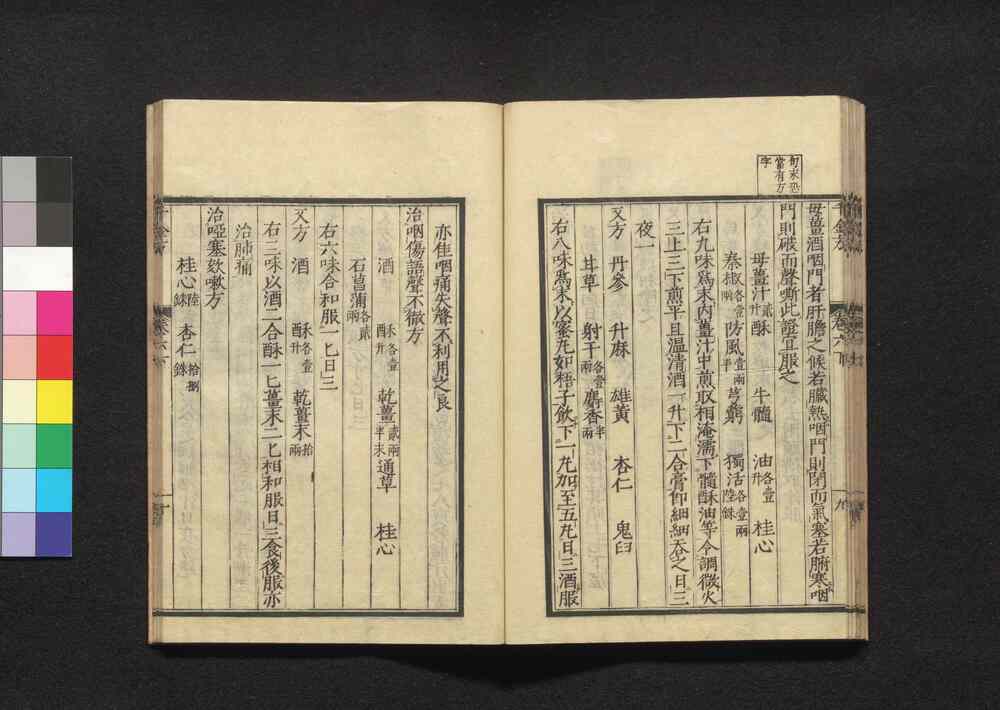 句末恐
當有方
字
母薑酒咽門者肝膽之候若臟熱咽門則閉而氣塞若腑寒咽
門則破而聲嘶此證宜服之
母薑汁貳升酥 牛髓 油各壹升桂心
秦椒各壹兩防風壹兩半芎藭 獨活各壹兩陸銖
右九味爲末內薑汁中煎取相淹濡下髓酥油等令調微火
三上三下煎平旦溫清酒一升下二合膏仰細細吞之日三
夜一
又方 丹參 升麻 雄黃 杏仁 鬼臼
甘草 射干各壹兩麝香半兩
右八味爲末以蜜丸如梧子飲下一丸加至五丸日三酒服
亦佳咽痛失聲不利用之良
治咽傷語聲不徹方
酒 酥各壹升 乾薑貳兩半末通草 桂心
石菖蒲各貳兩
右六味合和服一匕日三
又方 酒 酥各壹升 乾薑末拾兩
右三味以酒二合酥一匕薑末二匕相和服日三食後服亦
治肺痛
治啞塞欬嗽方
桂心陸銖 杏仁拾捌銖